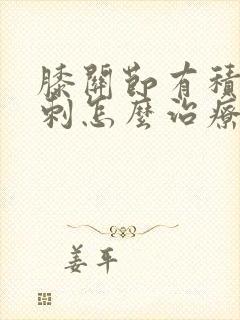 膝關節有積
刺怎麼治療
姜平